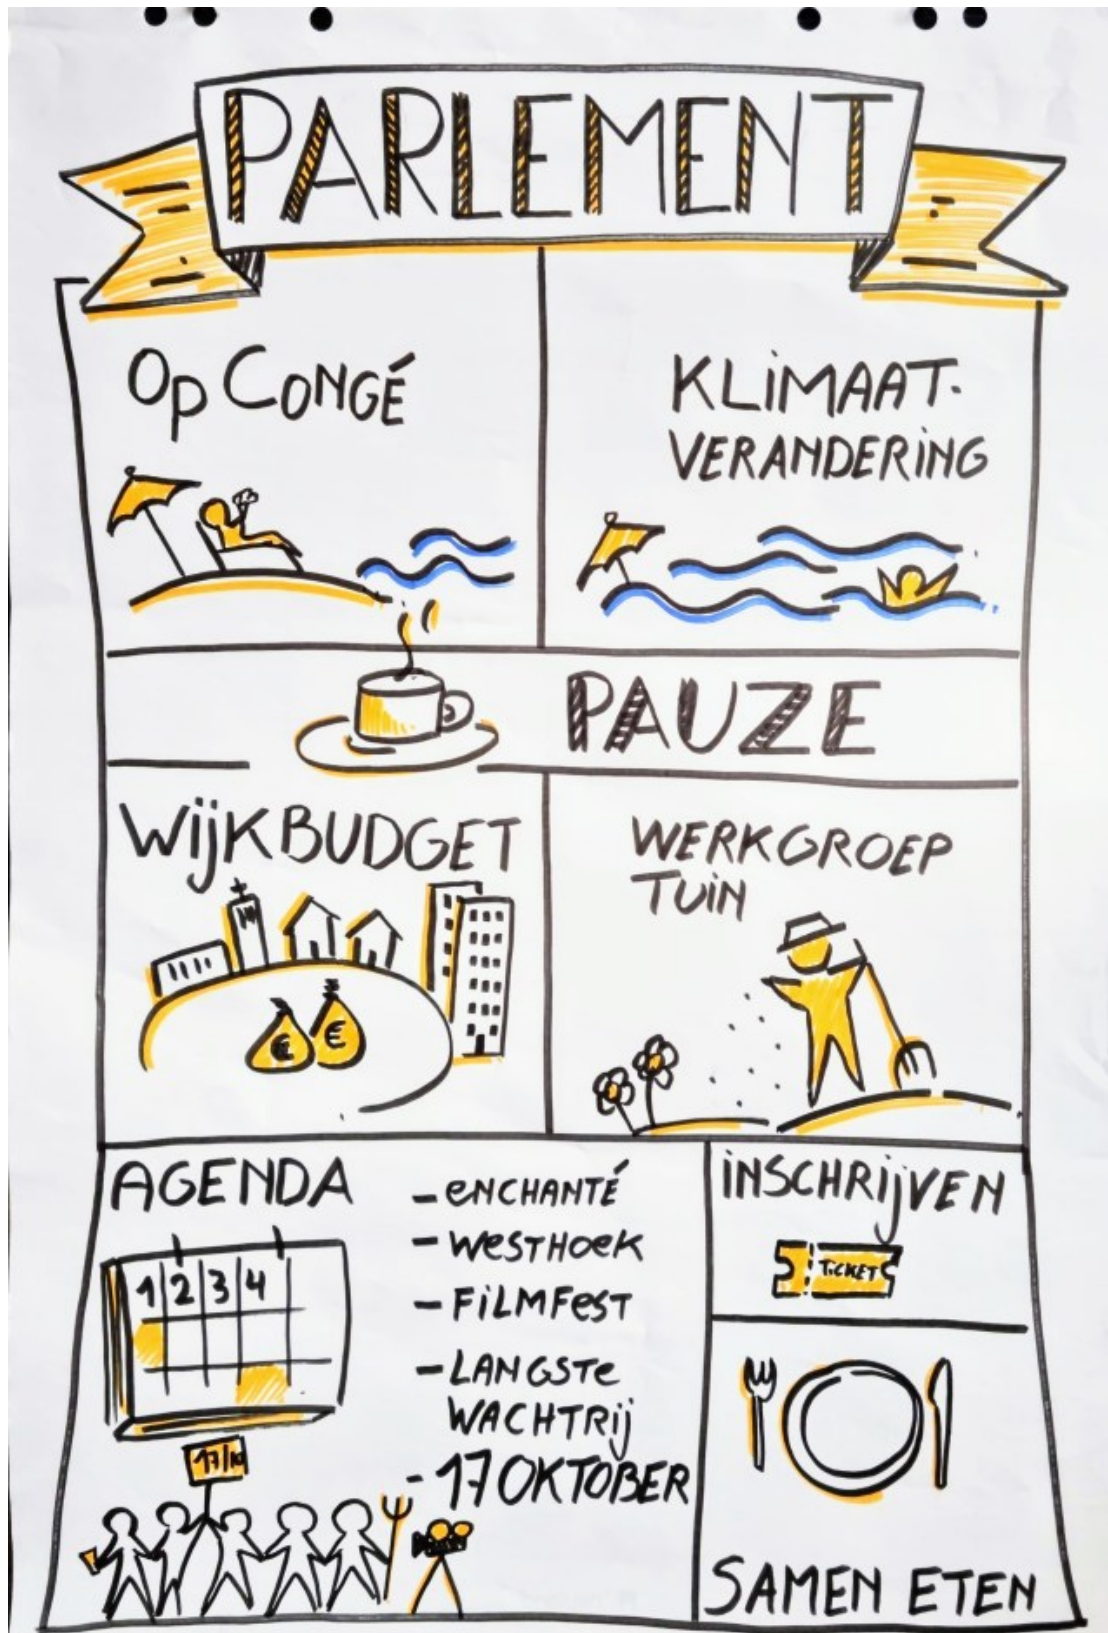 PARLEMENT
Op CONGÉ
KLiMAAT-
VERANDERiNG
PAUZE
WijKBUDGET
€ €
WERKGROEP
TUiN
AGENDA
1 2 3 4
- eNCHANTÉ
- WeSTHOeK
- FiLMFeST
- LANGSTe
WACHTRij
- 17 OKTOBER
17/10
iNSCHRijVEN
TiCKET
SAMEN ETEN